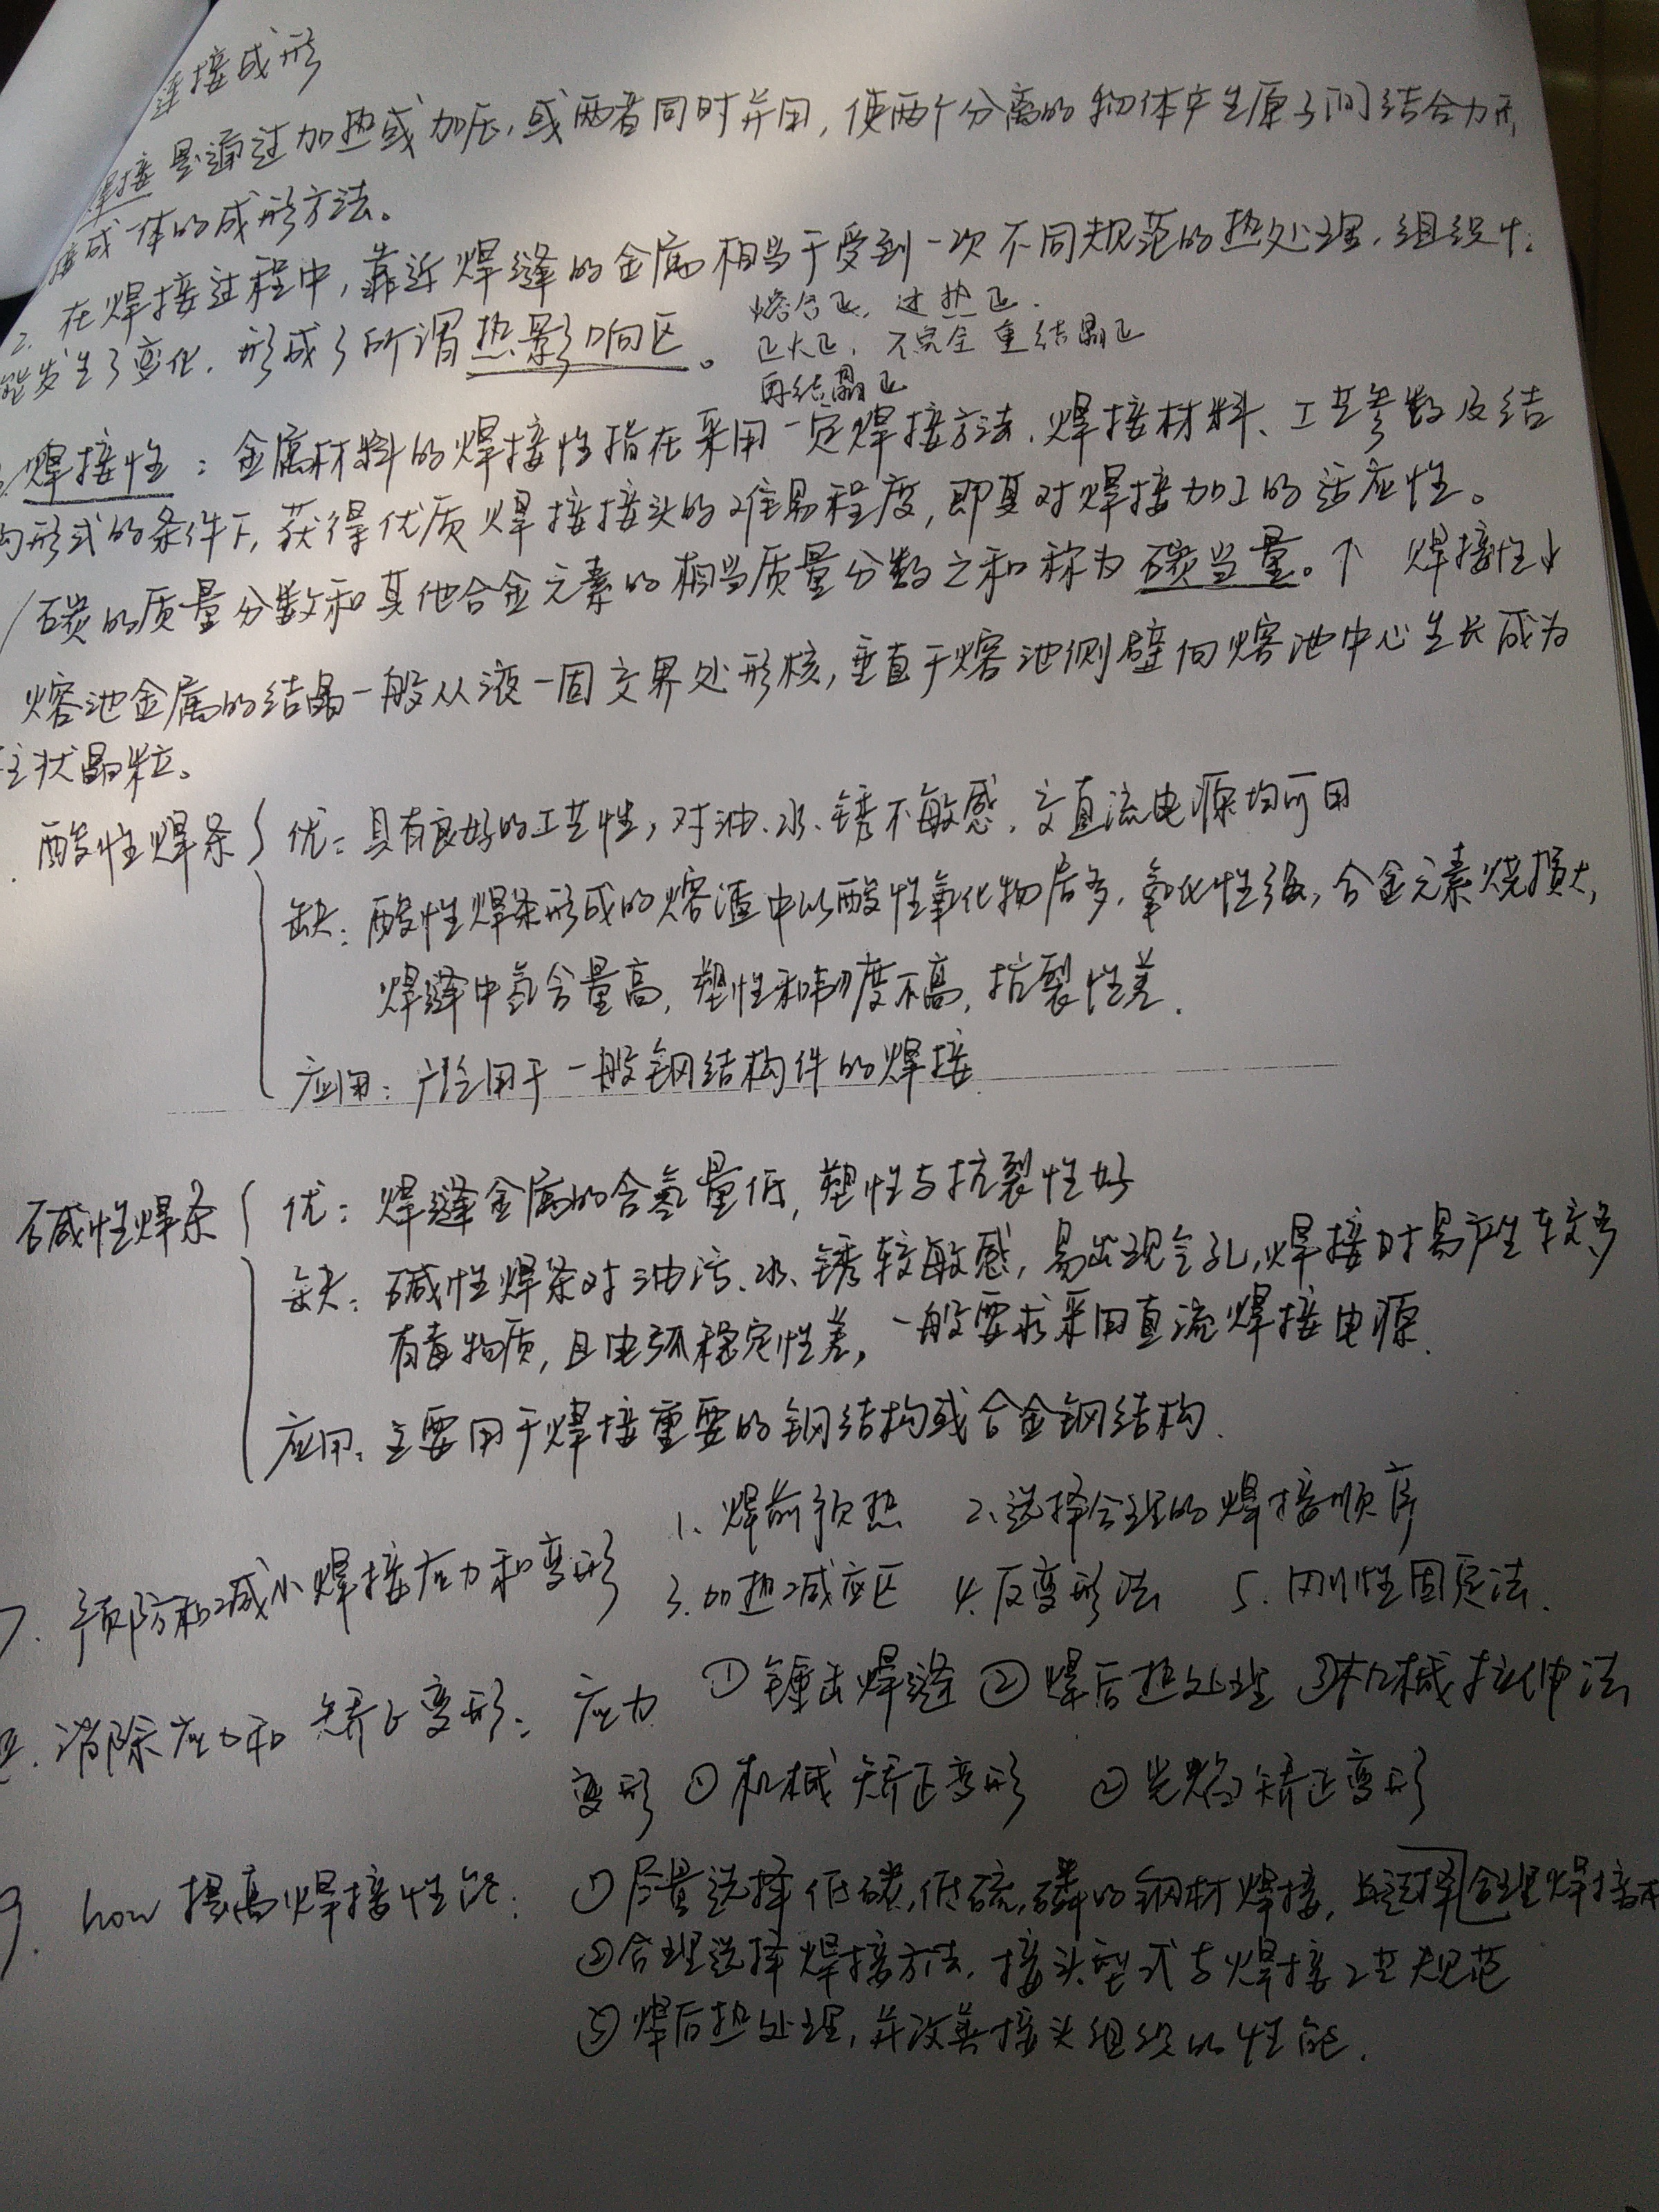 连接成形
焊接是通过加热或加压,或两者同时并用,使两个分离的物体产生原子间结合力而
连成一体的成形方法。
2. 在焊接过程中,靠近焊缝的金属相当于受到一次不同规范的热处理,组织性
能发生了变化,形成了所谓热影响区。
熔合区,过热区.
正火区,不完全重结晶区
再结晶区
焊接性:金属材料的焊接性指在采用一定焊接方法、焊接材料、工艺参数及结
构形式的条件下,获得优质焊接接头的难易程度,即其对焊接加工的适应性。
碳的质量分数和其他合金元素的相当质量分数之和称为碳当量。↑ 焊接性↓
熔池金属的结晶一般从液-固交界处形核,垂直于熔池侧壁向熔池中心生长成为
柱状晶粒。
酸性焊条 优:具有良好的工艺性,对油、水、锈不敏感,交直流电源均可用
缺:酸性焊条形成的熔渣中以酸性氧化物居多,氧化性强,合金元素烧损大,
焊缝中氢含量高,塑性和韧度不高,抗裂性差.
应用:广泛用于一般钢结构件的焊接.
碱性焊条 优:焊缝金属的含氢量低,塑性与抗裂性好
缺:碱性焊条对油污、水、锈较敏感,易出现气孔,焊接时易产生较多
有毒物质,且电弧稳定性差,一般要求采用直流焊接电源.
应用:主要用于焊接重要的钢结构或合金钢结构.
7. 预防和减小焊接应力和变形 1、焊前预热 2、选择合理的焊接顺序
3.加热减应区 4.反变形法 5.刚性固定法.
8. 消除应力和矫正变形:应力 ①锤击焊缝 ②焊后热处理 ③机械拉伸法
变形 ①机械矫正变形 ②火焰矫正变形
9. how提高焊接性能: ①尽量选择低碳,低硫,磷的钢材焊接,且选择合理焊接材
②合理选择焊接方法,接头型式与焊接工艺规范
③焊后热处理,并改善接头组织的性能.